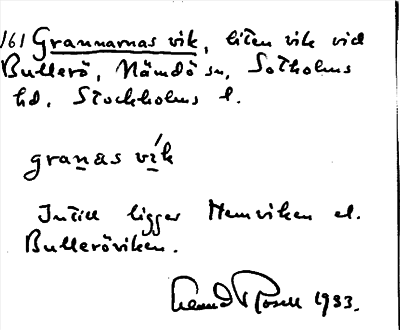 161 Grannarnas vik, liten vik vid
Bullerö, Nämdö sn, Sotholms
hd, Stockholms l.
granas vik
Intill ligger Hemviken el.
Bulleröviken.
1933.